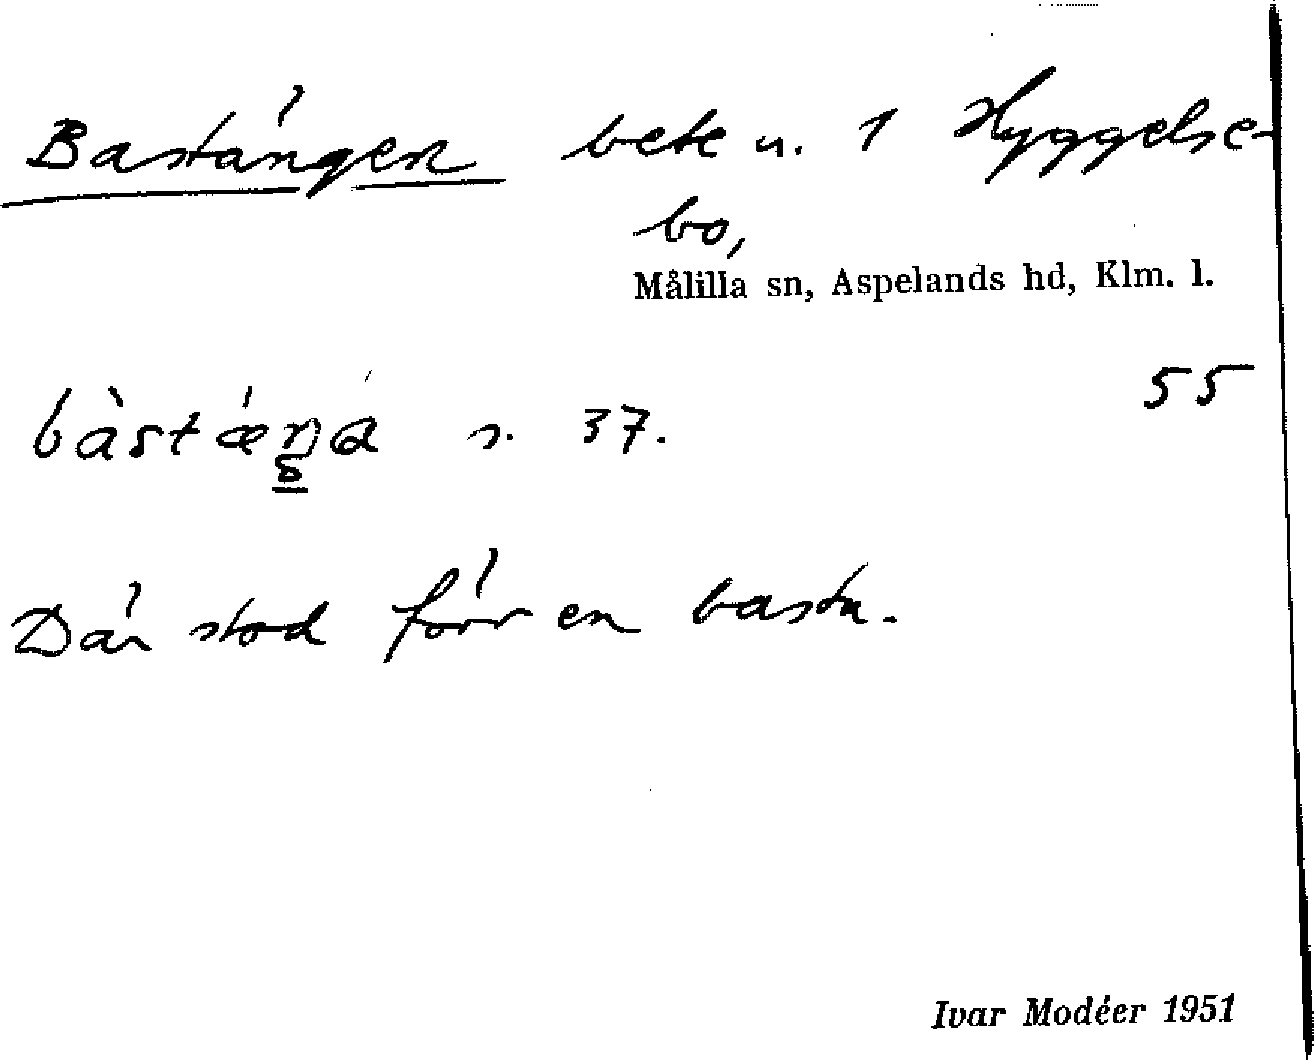 Bastängen bete u. 1 Hyggelse-
bo,
Målilla sn, Aspelands hd, Klm. l.
55
s. 37.
Där stod förr en basta.
Ivar Modéer 1951